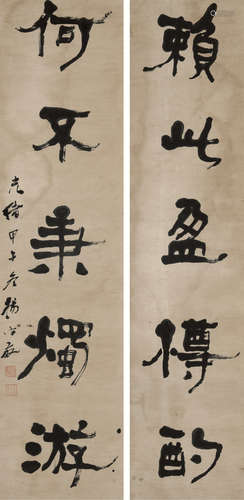 賴此盈樽酌
何不秉燭游
光緒甲午冬楊守敬